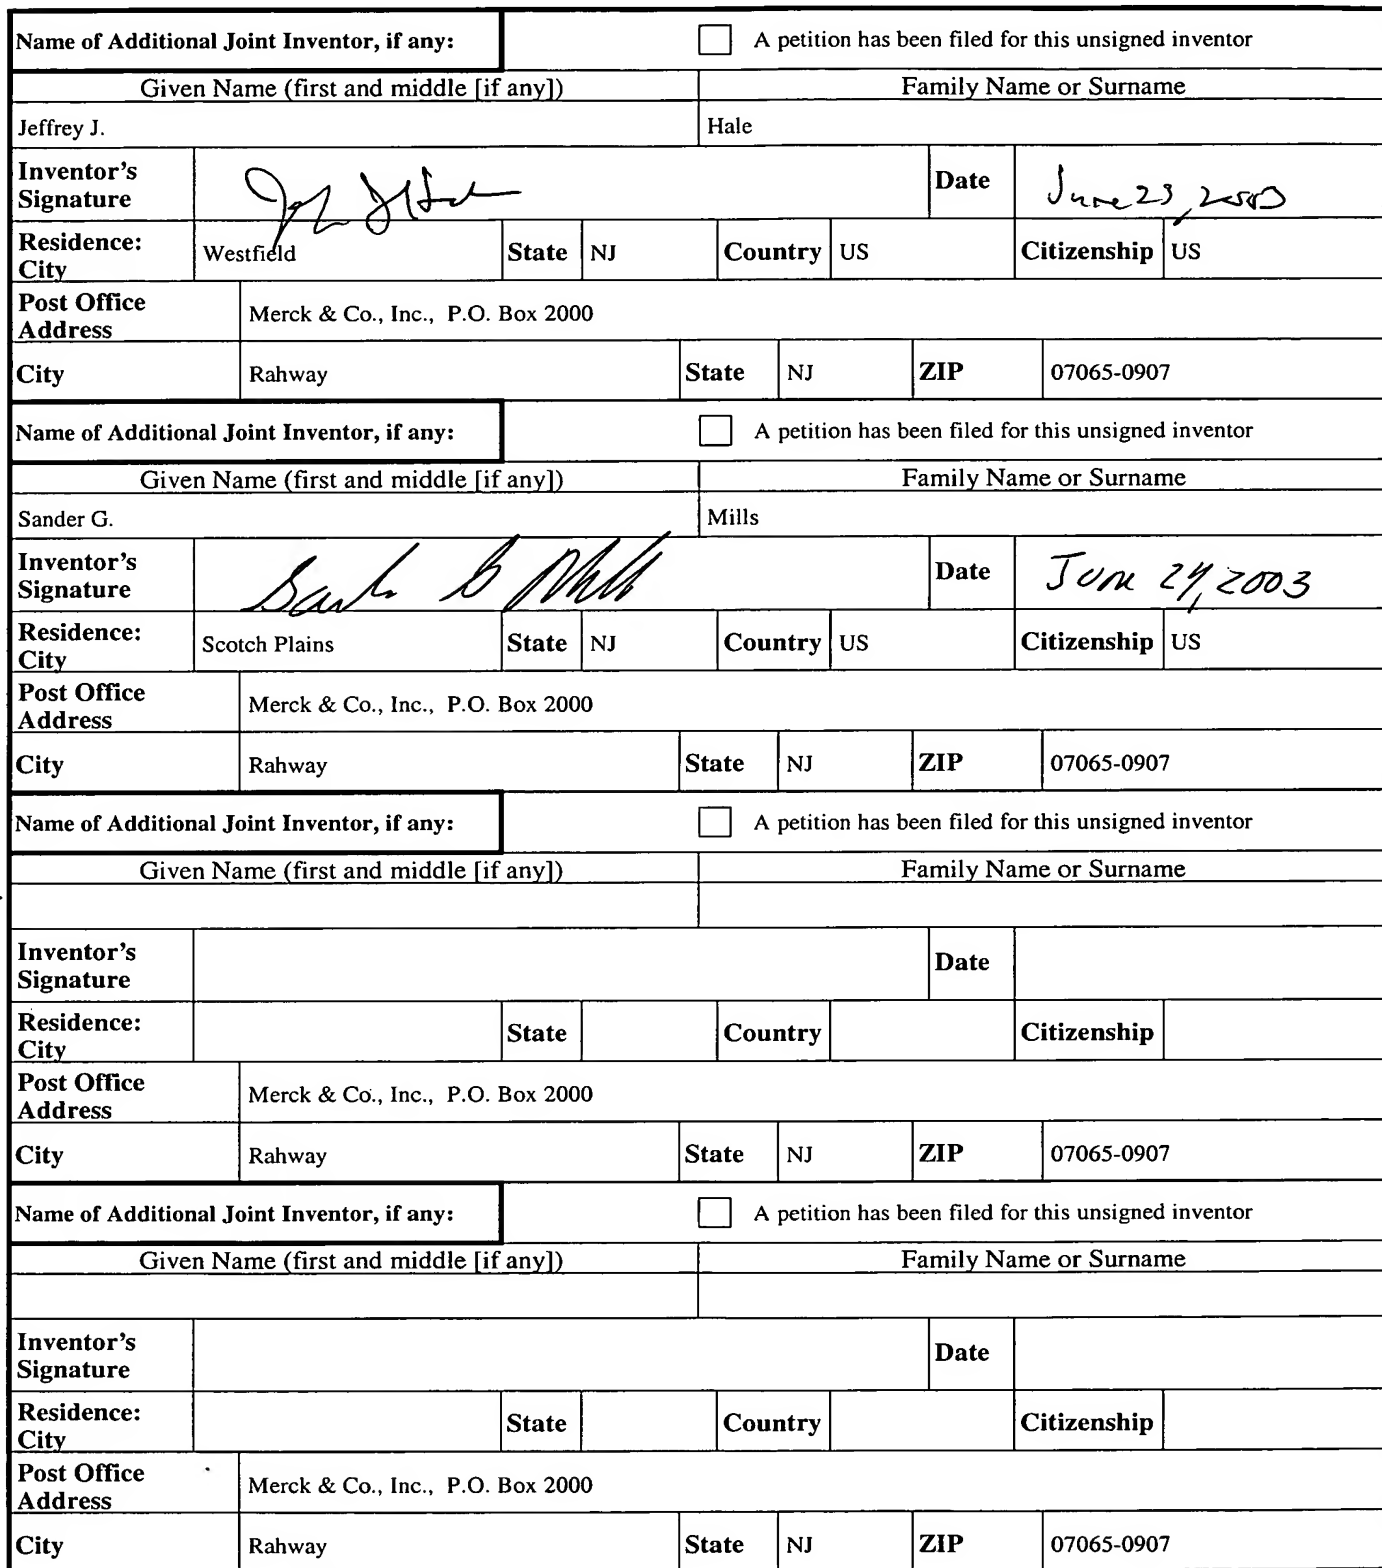 Name of Additional Joint Inventor, if any: A petition has been filed for this unsigned inventor
Given Name (first and middle [if any]) Family Name or Surname
Jeffrey J. Hale
Inventor's Signature Date June 23, 2003
Residence: City Westfield State NJ Country US Citizenship US
Post Office Address Merck & Co., Inc., P.O. Box 2000
City Rahway State NJ ZIP 07065-0907
Name of Additional Joint Inventor, if any: A petition has been filed for this unsigned inventor
Given Name (first and middle [if any]) Family Name or Surname
Sander G. Mills
Inventor's Signature Sander G Mills Date June 24, 2003
Residence: City Scotch Plains State NJ Country US Citizenship US
Post Office Address Merck & Co., Inc., P.O. Box 2000
City Rahway State NJ ZIP 07065-0907
Name of Additional Joint Inventor, if any: A petition has been filed for this unsigned inventor
Given Name (first and middle [if any]) Family Name or Surname
Inventor's Signature Date
Residence: City State Country Citizenship
Post Office Address Merck & Co., Inc., P.O. Box 2000
City Rahway State NJ ZIP 07065-0907
Name of Additional Joint Inventor, if any: A petition has been filed for this unsigned inventor
Given Name (first and middle [if any]) Family Name or Surname
Inventor's Signature Date
Residence: City State Country Citizenship
Post Office Address Merck & Co., Inc., P.O. Box 2000
City Rahway State NJ ZIP 07065-0907